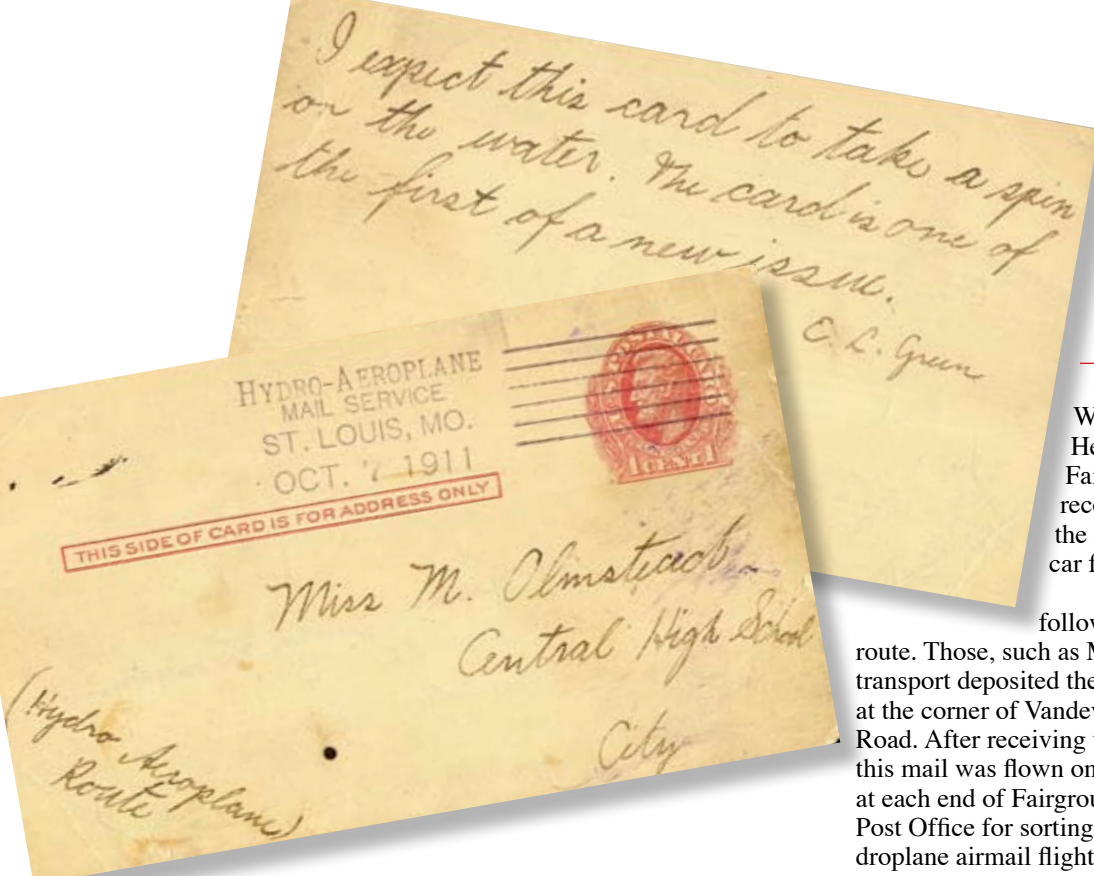 I expect this card to take a spin
on the water. The card is one of
the first of a new issue.
E. L. Green
HYDRO-AEROPLANE
MAIL SERVICE
ST. LOUIS, MO.
OCT. 7 1911
THIS SIDE OF CARD IS FOR ADDRESS ONLY
1 CENT 1
Miss M. Olmstead
Central High School
City
(Hydro Aeroplane
Route)
W
He
Fai
rece
the
car f
follow
route. Those, such as M
transport deposited the
at the corner of Vandev
Road. After receiving
this mail was flown on
at each end of Fairgrou
Post Office for sorting
droplane airmail flight